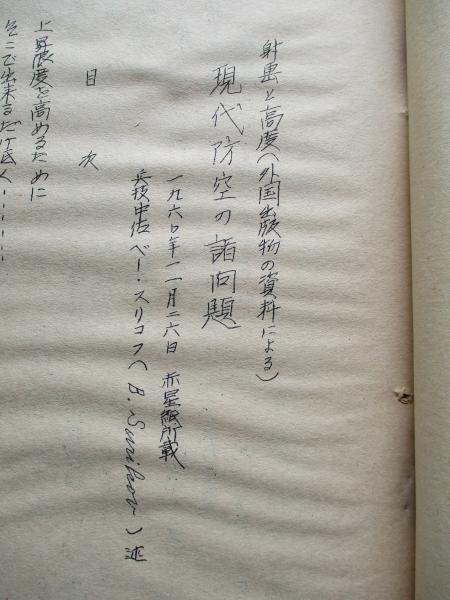 射撃と高度(外国出版物の資料による)
現代防空の諸問題
一九六〇年一一月二六日 赤星紙所載
兵技中佐ベー・スリコフ(B. Surikov)述
目次
上昇限度を高めるために
そこで出来るだけ広く……